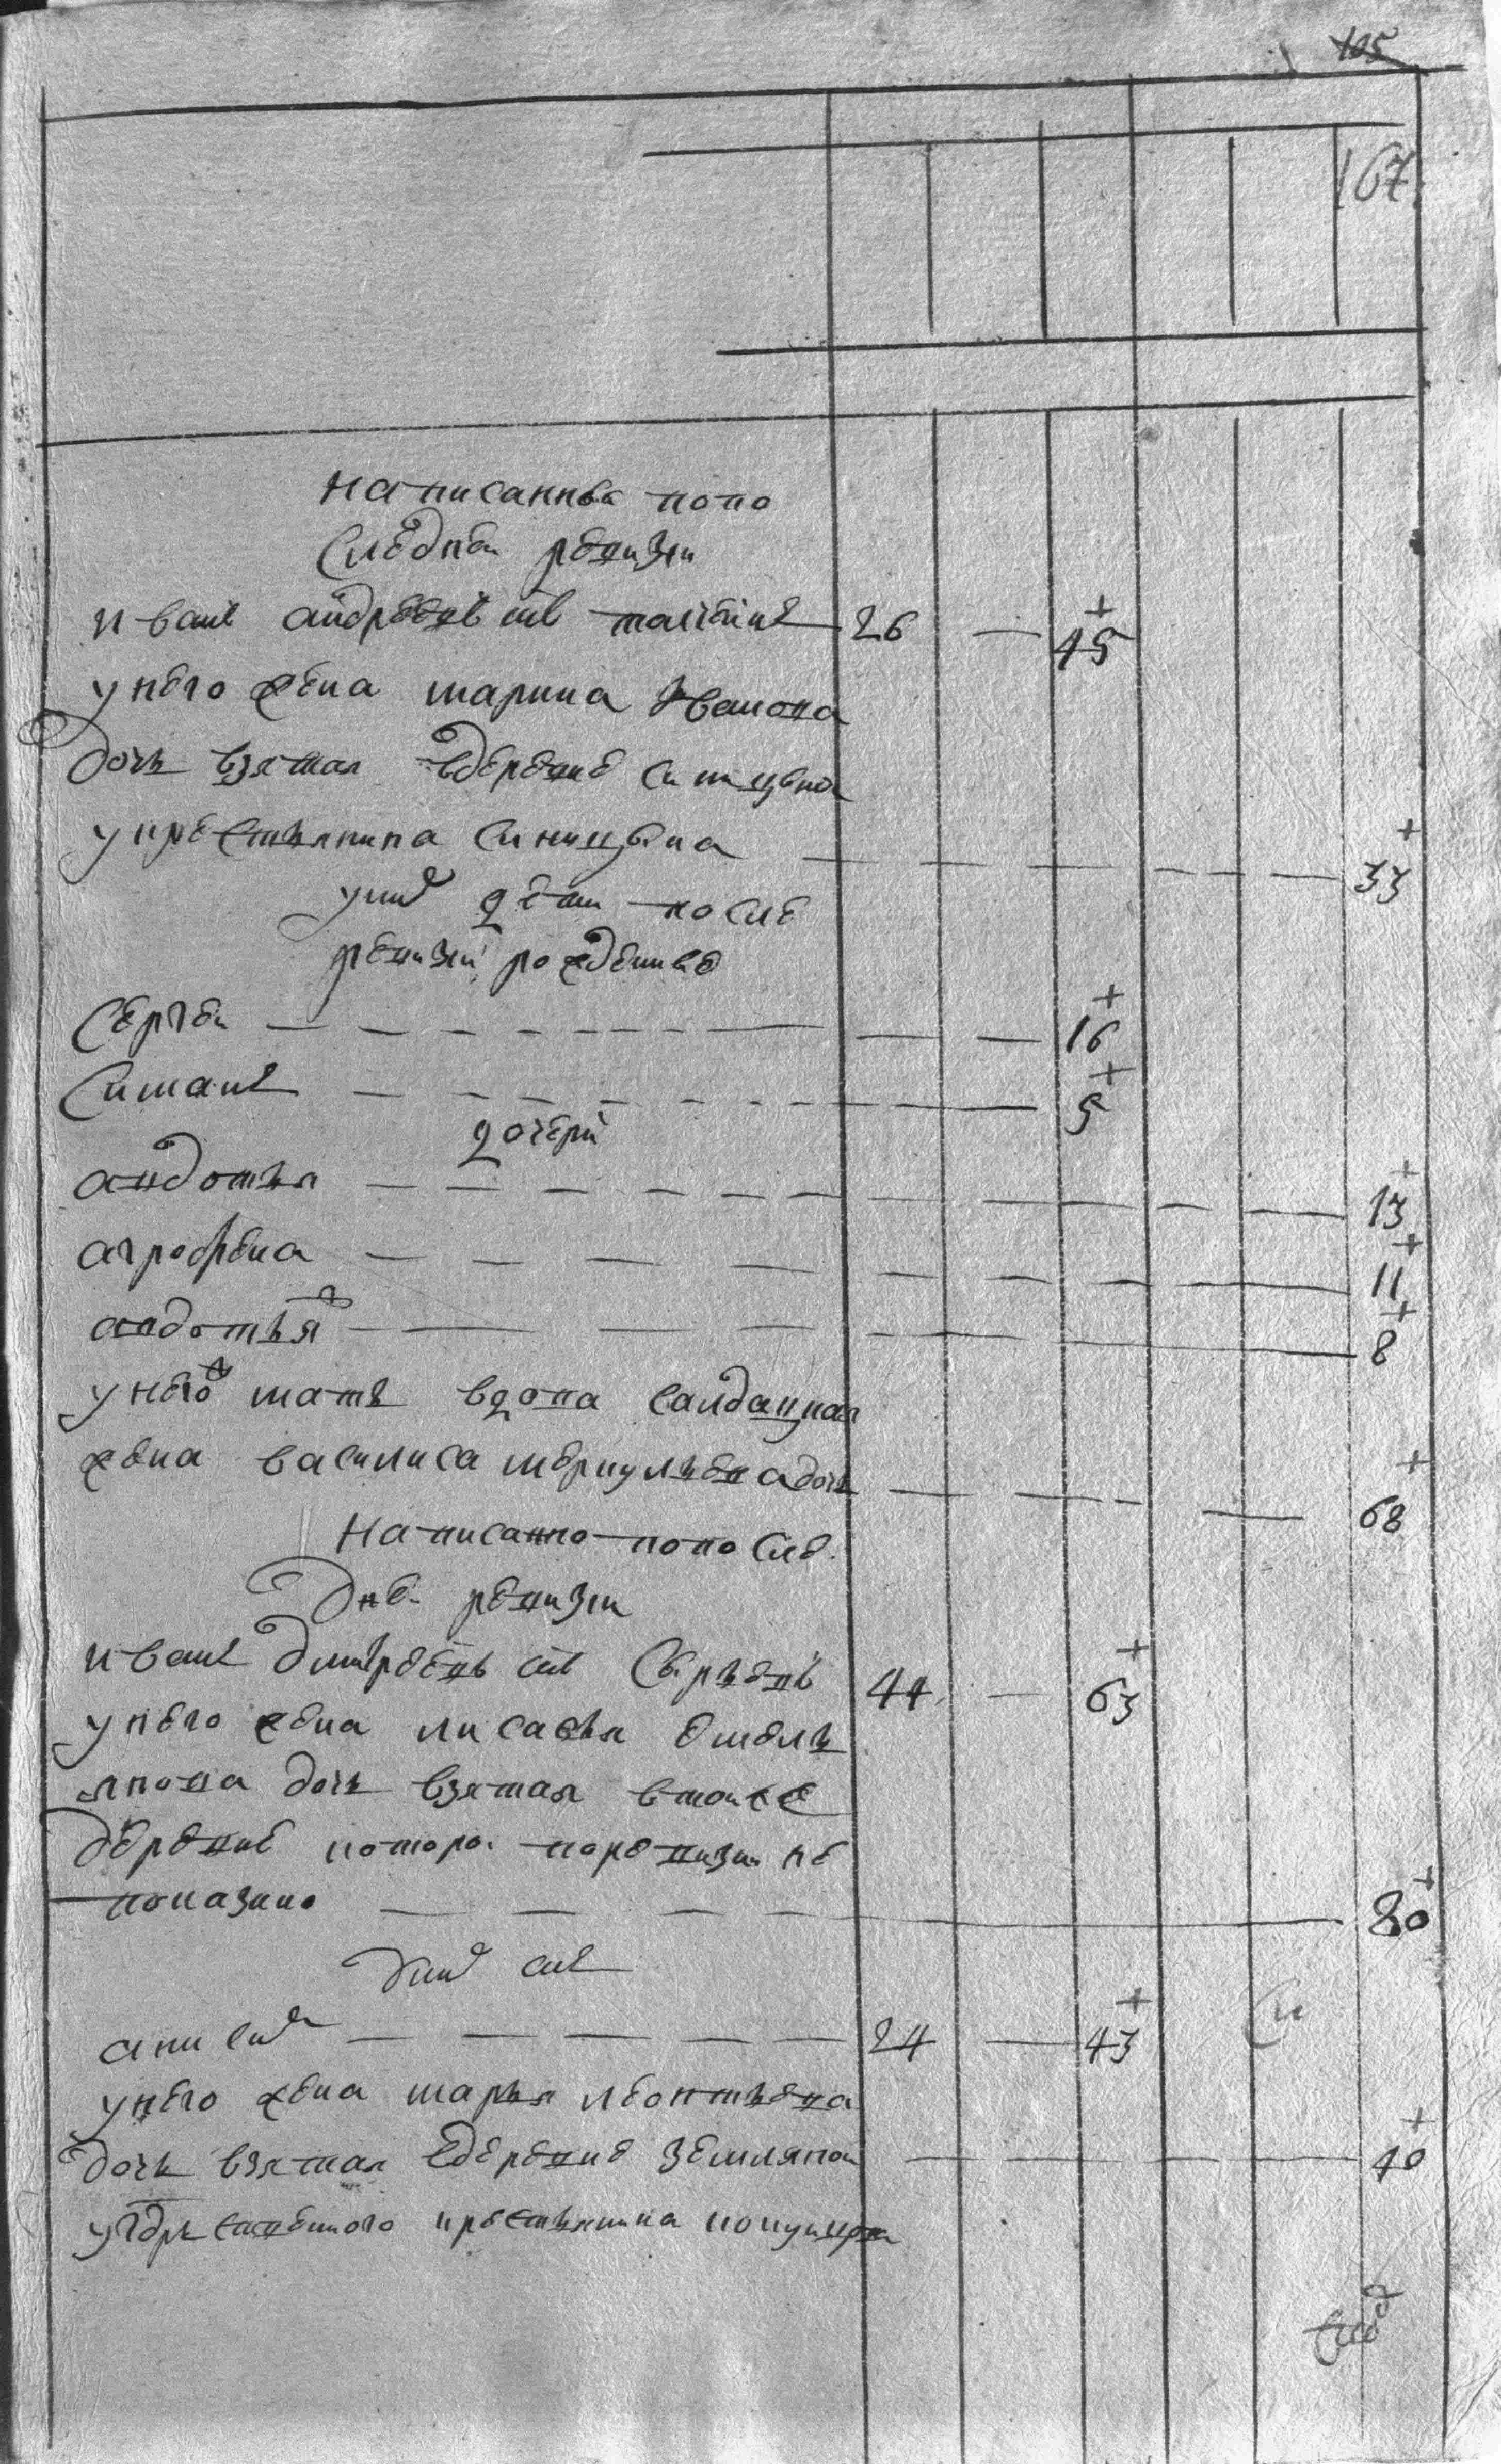 105
167
написанныя попо
следней ревизи
иванъ андреевъ снъ +
26 — 45
у него жена марина иванова
дочь взятая в деревне синицыной +
у крестьянина синицына — 33
у них дети после
ревизии рожденные +
Сергей — 16 +
Симанъ — 5
дочери
авдотья — 13 +
агрофена — 11 +
авдотья — 8 +
у него мать вдова салдацкая
жена василиса меркульева дочь — 68 +
написанно по после
дней ревизи
иванъ дмитреевъ снъ 44 — 63 +
у него жена лисавья емель
янова дочь взятая в той же
деревне которая по ревизии не
показано — 80 +
у них снъ
24 — 43 +
у него жена марья леонтьева
дочь взятая в деревне земляной — 40 +
крестьянина